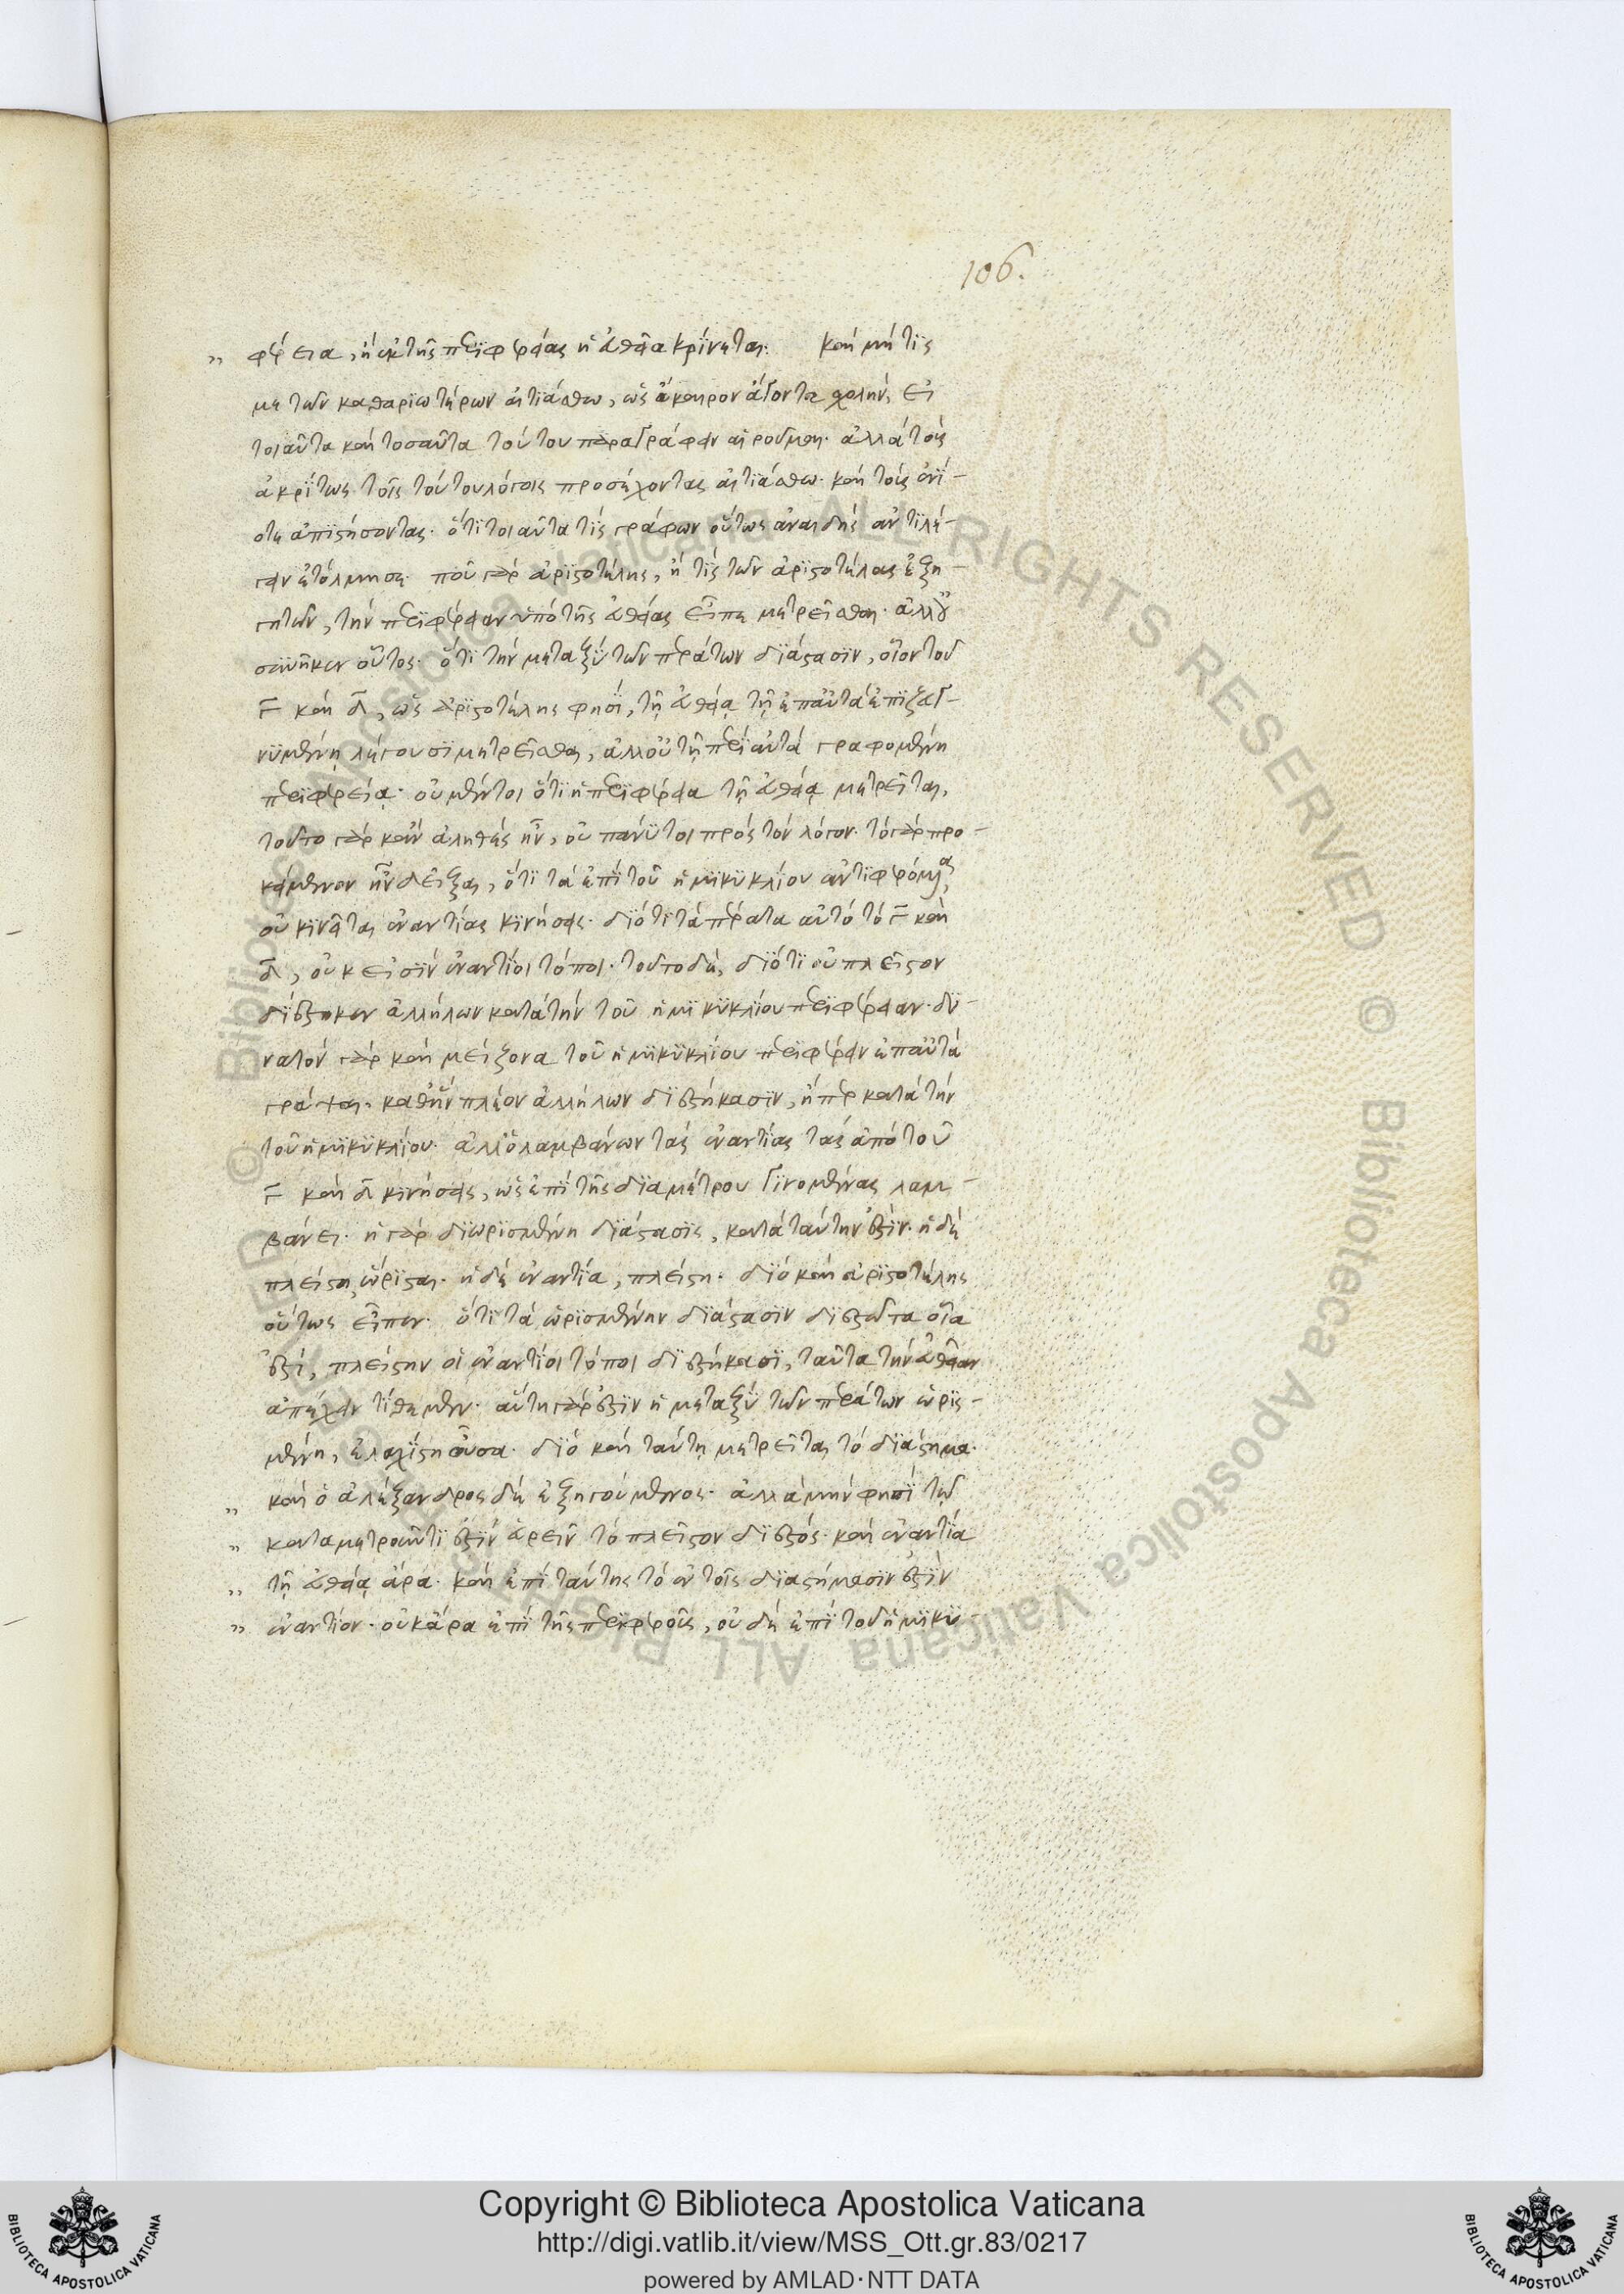 106.
„ φέρεια, ἢ ἐκ τῆς περιφερείας ἡ εὐθεῖα κρίνεται. καὶ μή τις
με τῶν καθαριωτέρων αἰτιάσθω, ὡς ἄκαιρον ἄγοντα σχολὴν, εἰ
τοιαῦτα καὶ τοσαῦτα τούτου παραγράφειν αἱροῦμαι. ἀλλὰ τοὺς
ἀκρίτως τοῖς τούτου λόγοις προσέχοντας αἰτιάσθω. καὶ τοὺς ἐνί-
οτε ἀπιστήσοντας. ὅτι τοιαῦτά τις γράφων οὕτως ἀναιδὴς ἀντιλέ-
γειν ἐτόλμησε. ποῦ γὰρ ἀριστοτέλης, ἢ τίς τῶν ἀριστοτέλους ἐξη-
γητῶν, τὴν περιφέρειαν ὑπὸ τῆς εὐθείας εἶπε μετρεῖσθαι. ἀλλ' οὐ
συνῆκεν οὗτος. ὅτι τὴν μεταξὺ τῶν περάτων διάστασιν, οἷον τοῦ
γ καὶ δ, ὡς ἀριστοτέλης φησὶ, τῇ εὐθείᾳ τῇ ἐπ' αὐτὰ ἐπιζευγ-
νυμένῃ λέγουσι μετρεῖσθαι, ἀλλ' οὐ τῇ περὶ αὐτὰ γραφομένῃ
περιφερείᾳ. οὐ μέντοι ὅτι ἡ περιφέρεια τῇ εὐθείᾳ μετρεῖται,
τοῦτο γὰρ κἂν ἀληθὲς ἦν, οὐ πάνυ τοι πρὸς τὸν λόγον. τὸ γὰρ προ-
κείμενον ἦν δεῖξαι, ὅτι τὰ ἐπὶ τοῦ ἡμικυκλίου ἀντιφερόμενα,
οὐ κινεῖται ἐναντίας κινήσεις. διότι τὰ πέρατα αὐτὸ τὸ γ καὶ
δ, οὐκ εἰσὶν ἐναντίοι τόποι. τοῦτο δὲ, διότι οὐ πλεῖστον
διέστηκεν ἀλλήλων κατὰ τὴν τοῦ ἡμικυκλίου περιφέρειαν. δυ-
νατὸν γὰρ καὶ μείζονα τοῦ ἡμικυκλίου περιφέρειαν ἐπ' αὐτὰ
γράψαι. καθ' ἣν πλέον ἀλλήλων διεστήκασιν, ἤπερ κατὰ τὴν
τοῦ ἡμικυκλίου. ἀλλ' ὁ λαμβάνων τὰς ἐναντίας τὰς ἀπὸ τοῦ
γ καὶ δ κινήσεις, ὡς ἐπὶ τῆς διαμέτρου γινομένας λαμ-
βάνει. ἡ γὰρ διωρισμένη διάστασις, κατὰ ταύτην ἐστίν. ἡ δὲ
πλείστη, ὥρισται. ἡ δὲ ἐναντία, πλείστη. διὸ καὶ ἀριστοτέλης
οὕτως εἶπεν. ὅτι τὰ ὡρισμένην διάστασιν διεστῶτα οἷα
ἐστὶ, πλείστην οἱ ἐναντίοι τόποι διεστήκασι, ταῦτα τὴν εὐθεῖαν
ἀπέχειν τίθεμεν. αὕτη γάρ ἐστιν ἡ μεταξὺ τῶν περάτων ὡρισ-
μένη, ἐλαχίστη οὖσα. διὸ καὶ ταύτῃ μετρεῖται τὸ διάστημα.
„ καὶ ὁ ἀλέξανδρος δὲ ἐξηγούμενος. ἀλλὰ μήν φησι τῷ
„ καταμετροῦντι ἐστὶν εὑρεῖν τὸ πλεῖστον διεστός. καὶ ἐναντία
„ τῇ εὐθείᾳ ἄρα. καὶ ἐπὶ ταύτης τὸ ἐν τοῖς διαστήμασιν ἐστὶν
„ ἐναντίον. οὐκ ἄρα ἐπὶ τῆς περιφεροῦς, οὐδὲ ἐπὶ τοῦ ἡμικυ-
Copyright © Biblioteca Apostolica Vaticana
http://digi.vatlib.it/view/MSS_Ott.gr.83/0217
powered by AMLAD·NTT DATA